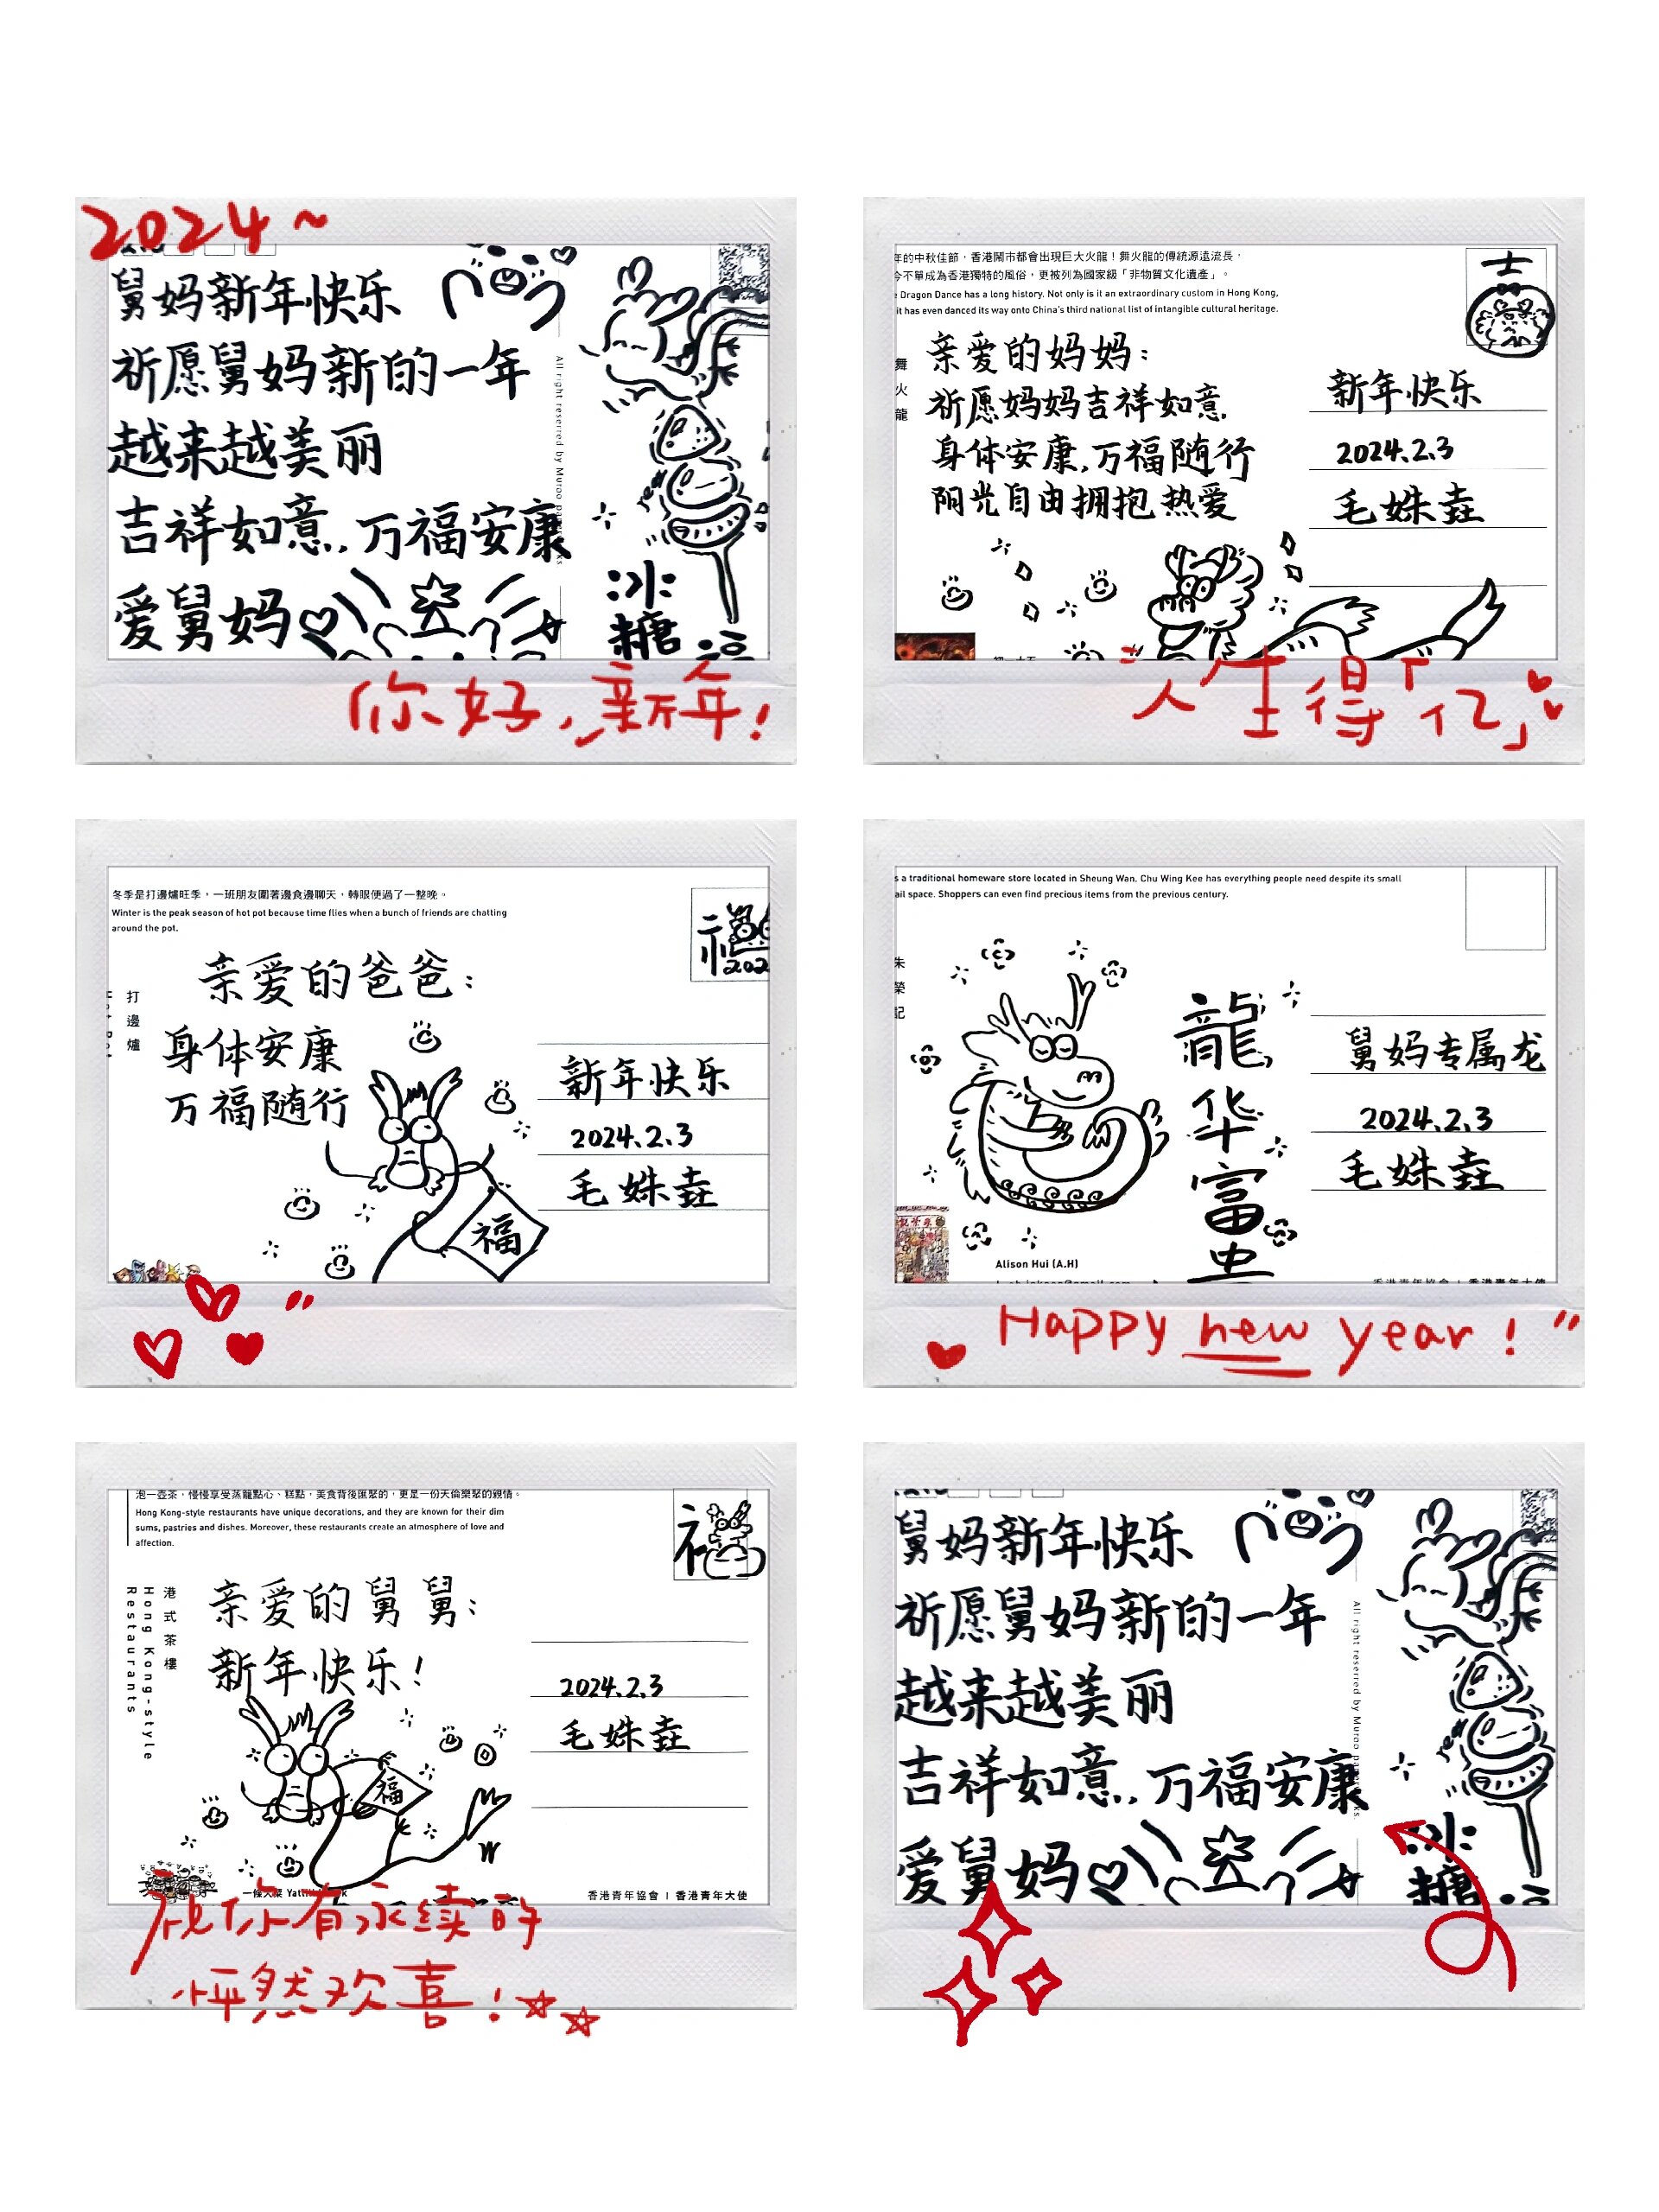 2024~
舅妈新年快乐
祈愿舅妈新的一年
越来越美丽
吉祥如意,万福安康
爱舅妈
All right reserred by Muroo
冰
糖
你好,新年!
年的中秋佳節,香港鬧市都會出現巨大火龍!舞火龍的傳統源遠流長,
今不單成為香港獨特的風俗,更被列為國家級「非物質文化遺產」。
Dragon Dance has a long history. Not only is it an extraordinary custom in Hong Kong,
it has even danced its way onto China's third national list of intangible cultural heritage.
舞火龍
吉
亲爱的妈妈:
祈愿妈妈吉祥如意
身体安康,万福随行
阳光自由拥抱热爱
新年快乐
2024.2.3
毛姝壵
人生得「亿」
冬季是打邊爐旺季,一班朋友圍著邊食邊聊天,轉眼便過了一整晚。
Winter is the peak season of hot pot because time flies when a bunch of friends are chatting
around the pot.
打邊爐
亲爱的爸爸:
身体安康
万福随行
福
新年快乐
2024.2.3
毛姝壵
s a traditional homeware store located in Sheung Wan, Chu Wing Kee has everything people need despite its small
ail space. Shoppers can even find precious items from the previous century.
朱榮記
龍华富贵
舅妈专属龙
2024.2.3
毛姝壵
Alison Hui (A.H)
香港青年協會 | 香港青年大使
Happy new year!
泡一壺茶,慢慢享受蒸籠點心、糕點,美食背後匯聚的,更是一份天倫樂聚的親情。
Hong Kong-style restaurants have unique decorations, and they are known for their dim
sums, pastries and dishes. Moreover, these restaurants create an atmosphere of love and
affection.
港式茶樓
Hong Kong-style
Restaurants
亲爱的舅舅:
新年快乐!
福
2024.2.3
毛姝壵
香港青年協會 | 香港青年大使
祝你有永续的
怦然欢喜!
舅妈新年快乐
祈愿舅妈新的一年
越来越美丽
吉祥如意,万福安康
爱舅妈
All right reserred by Muroo
冰
糖